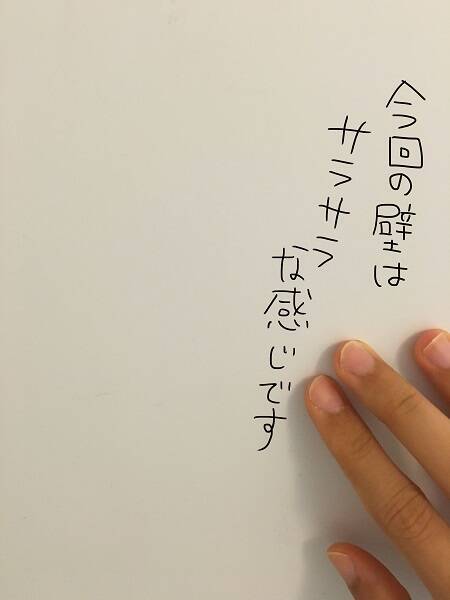 今回の壁は
サラサラ
な感じです